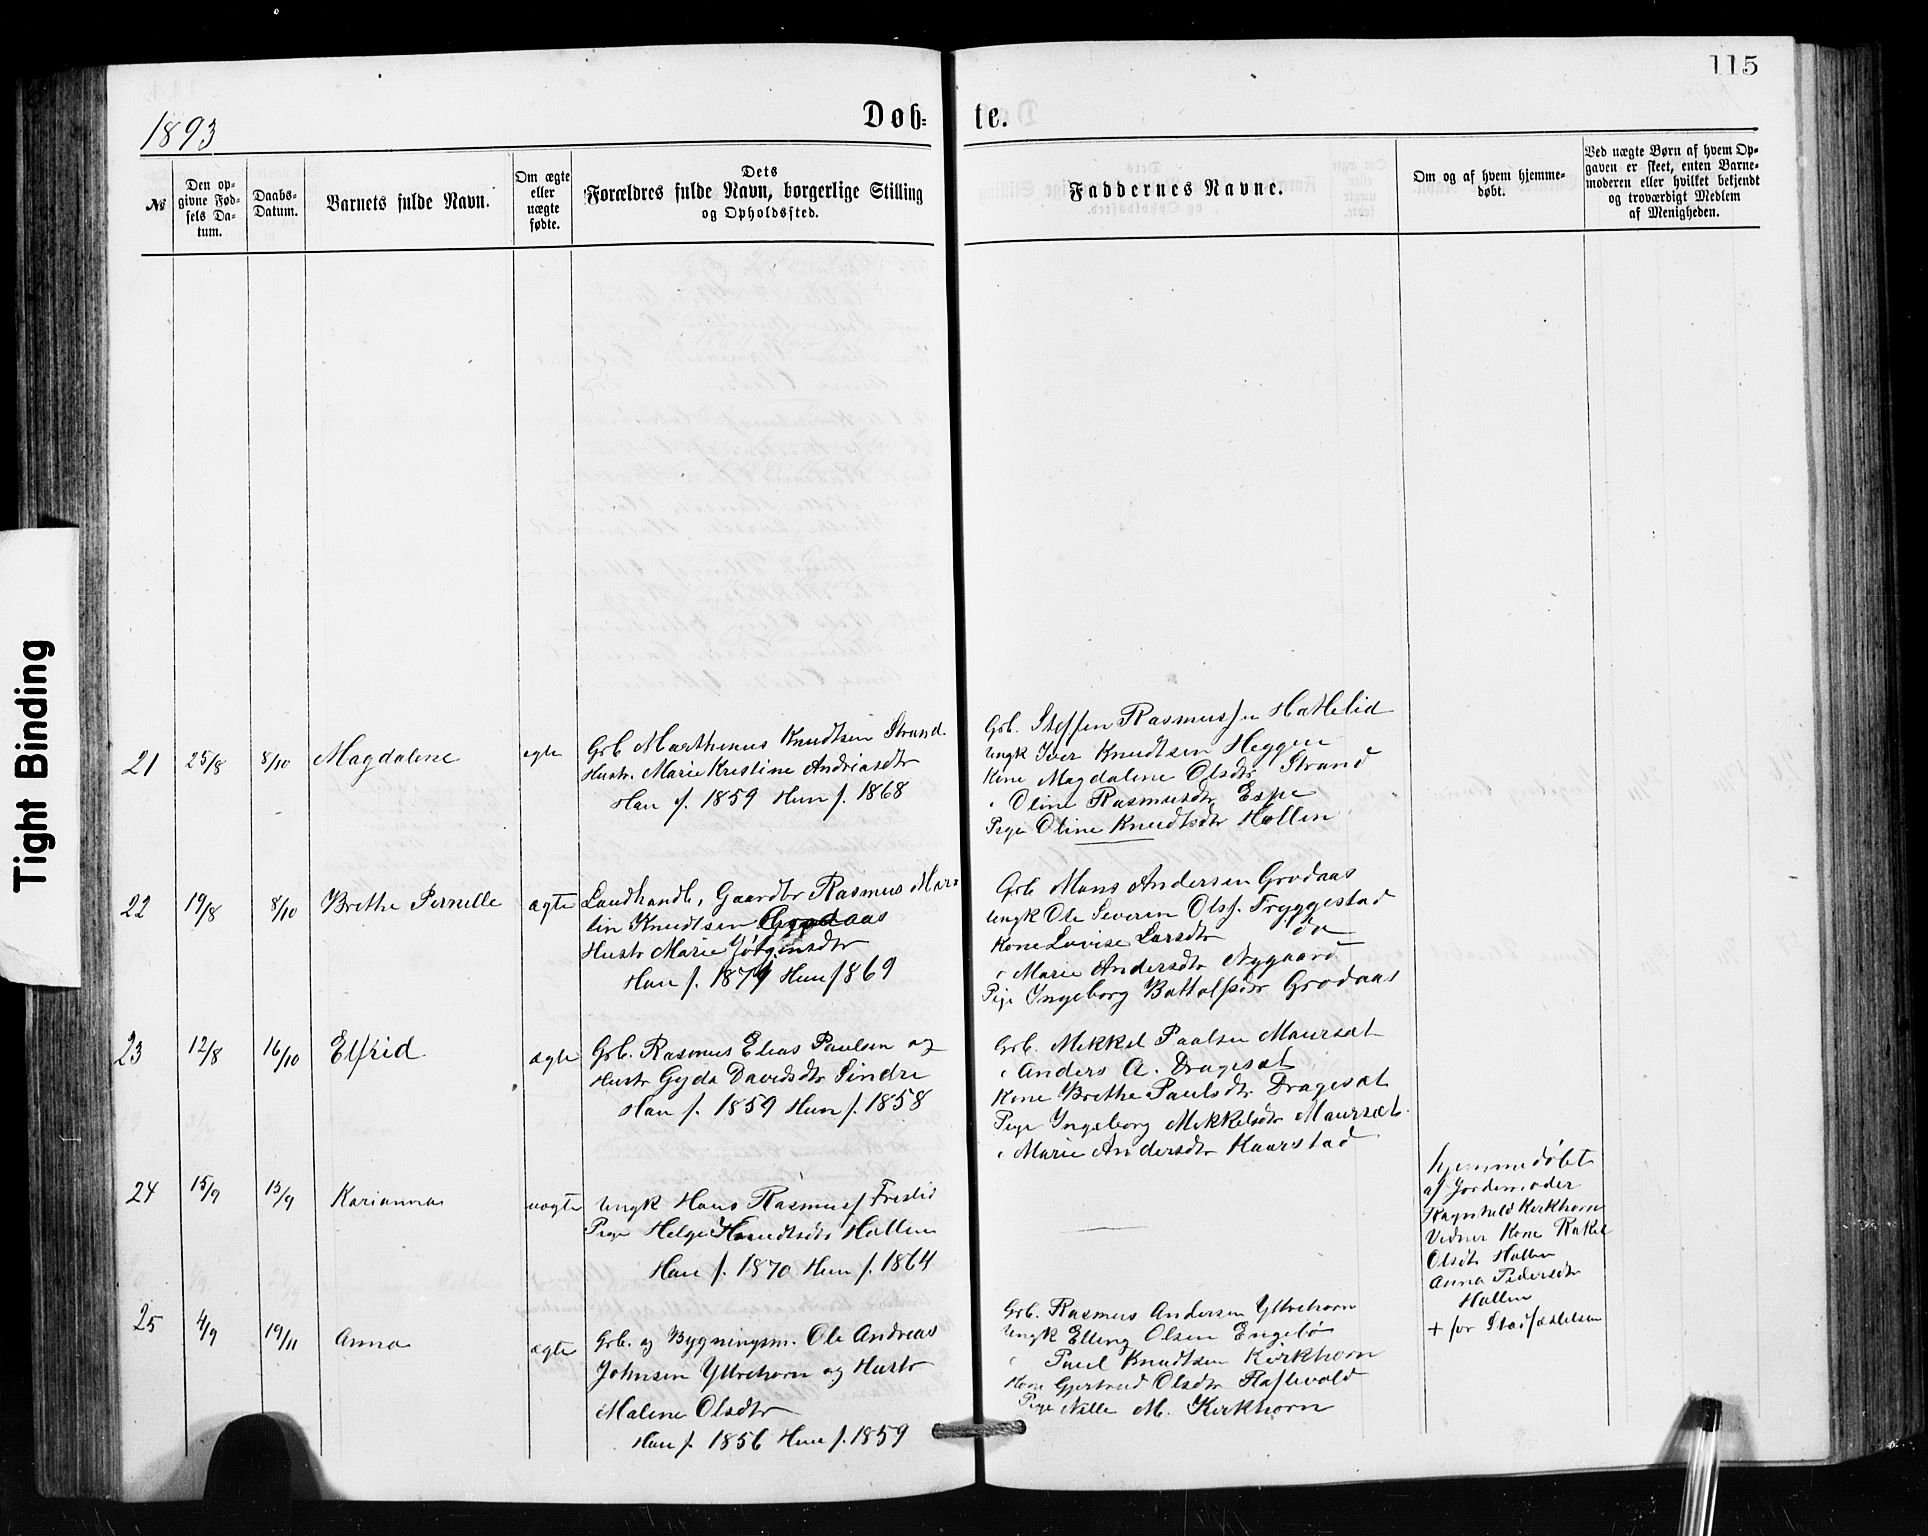 115
1893
Døb-
te.
№
Den op-
givne Fød-
sels Da-
tum.
Daabs-
Datum.
Barnets fulde Navn.
Om ægte
eller
uægte
fødte.
Dets
Forældres fulde Navn, borgerlige Stilling
og Opholdssted.
Faddernes Navne.
Om og af hvem hjemme-
døbt.
Ved uægte Børn af hvem Op-
gaven er skeet, enten Barne-
moderen eller hvilket bekjendt
og troværdigt Medlem
af Menigheden.
Tight Binding
21
25/8
8/10
Magdalene
egte
Grb Marthinus Knudtsen Strand
Hustr. Marie Kristine Andriasdtr
Han f. 1859 Hun f. 1868
Grb. Steffen Rasmussen Hatlelid
Ungk Iver Knudtsen Heggen
Kone Magdalene Olsdtr Strand
" Oline Rasmusdtr Espe
Pige Oline Knudtsdtr Hallen
22
19/8
8/10
Brethe Pernille
ægte
Landhandl, Gaardbr Rasmus Mar-
tin Knudtsen Grodaas
Hustr Marie Jørginsdtr
Han f. 1874 Hun f 869
Grb Mons Andersen Grodaas
Ungk Ole Severin Olsf. Tryggestad
Kone Lovise Larsdtr do
" Marie Andersdtr Nygaard
Pige Ingeborg Battolfsdtr Grodaas
23
12/8
16/10
Elfrid
ægte
Grb. Rasmus Elias Paulsen og
Hustr Gyda Davidsdtr Sindre
Han f. 1859 Hun f. 1858
Grb. Mikkel Paulsen Maursæt
" Anders A. Dragesæt
Kone Brethe Paulsdtr Dragesæt
Pige Ingeborg Mikkelsdtr Maursæt
" Marie Andersdtr Haarstad
24
15/9
15/9
Karianna
uægte
Ungk Hans Rasmusf Freslid
Pige Helge Knudtsdtr Hallen
Han f. 1870 Hun f. 1864
hjemmedøbt
af Jordemoder
Ragnhild Kirkhorn
Vidner Kone Rakel
Olsdtr Hallen
Anna Pedersdtr
Hallen
+ før Stadfæstelsen
25
4/9
19/11
Anna
ægte
Grb. og Bygningsm. Ole Andreas
Johnsen Yttrehorn og Hustr
Malene Olsdtr
Han f. 1856 Hun f. 1859
Grb. Rasmus Andersen Yttrehorn
Ungk Elling Olsen Engelø
" Paul Knudtsen Kirkhorn
Kone Gjertrud Olsdtr Raftevold
Pige Nille M. Kirkhorn